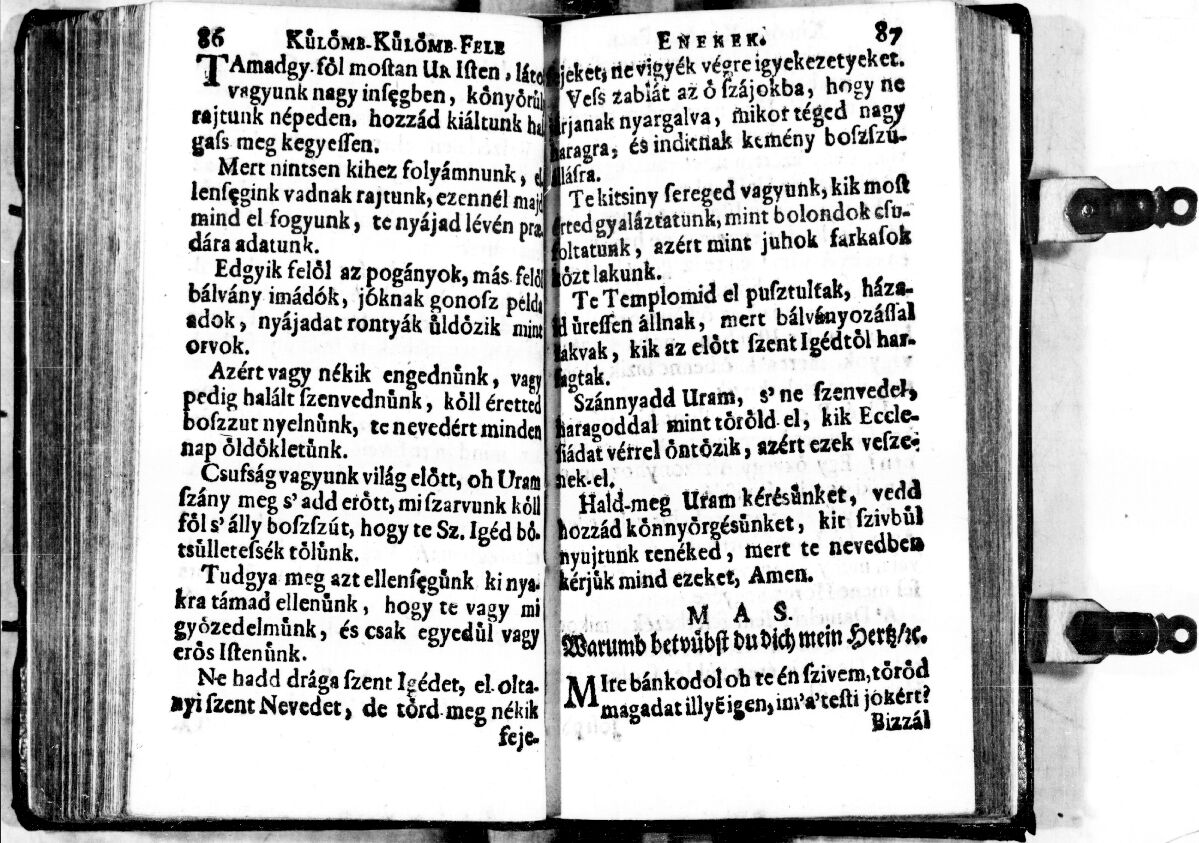 86 KŮLŐMB-KŮLŐMB-FELE
TAmadgy-fől moſtan UR Iſten, láto
vagyunk nagy inſęgben, kőnyőrůl
rajtunk népeden, hozzád kiáltunk hal
gaſs meg kegyeſſen.
Mert nintsen kihez folyámnunk, el
lenſęgink vadnak rajtunk, ezennél majd
mind el fogyunk, te nyájad lévén pra
dára adatunk.
Edgyik felől az pogányok, más felől
bálvány imádók, jóknak gonoſz példa
adok, nyájadat rontyák ůldőzik mint
orvok.
Azért vagy nékik engednůnk, vagy
pedig halált ſzenvednůnk, kőll éretted
boſzzut nyelnůnk, te nevedért minden
nap őldőkletůnk.
Csufság vagyunk világ előtt, oh Uram
ſzány meg s' add erőtt, mi ſzarvunk kőll
fől s' álly boſzſzút, hogy te Sz. Igéd bő-
tsůlleteſsék tőlůnk.
Tudgya meg azt ellenſęgůnk ki nya-
kra támad ellenůnk, hogy te vagy mi
gyózedelmůnk, és csak egyedůl vagy
erős Iſtenůnk.
Ne hadd drága ſzent Igédet, el-olta-
nyi ſzent Nevedet, de tőrd-meg nékik
feje-
ENEKEK. 87
jeket, ne vigyék végre igyekezetyeket.
Veſs zabiát az ő ſzájokba, hogy ne
járjanak nyargalva, mikor téged nagy
haragra, és inditnak kemény boſzſzú-
állásra.
Te kitsiny ſereged vagyunk, kik moſt
érted gyaláztatunk, mint bolondok csu-
foltatunk, azért mint juhok farkaſok
kőzt lakunk.
Te Templomid el puſztultak, háza-
id ůreſſen állnak, mert bálványozáſſal
rakvak, kik az előtt ſzent Igédtől har-
ſagtak.
Szánnyadd Uram, s' ne ſzenvedd,
haragoddal mint tőrőld-el, kik Eccle-
ſiádat vérrel őntőzik, azért ezek veſze-
nek-el.
Hald-meg Uram kérésůnket, vedd
hozzád kőnnyőrgésůnket, kit ſzivbůl
nyujtunk tenéked, mert te nevedben
kérjůk mind ezeket, Amen.
M A S.
Warumb betrůbſt du dich mein Hertz/ꝛc.
MIre bánkodol oh te én ſzivem, tőrőd
magadat illy igen, im'a'teſti jókért?
Bizzál